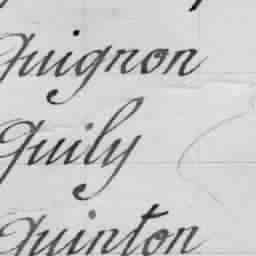 Guignon
Guily
Guinton